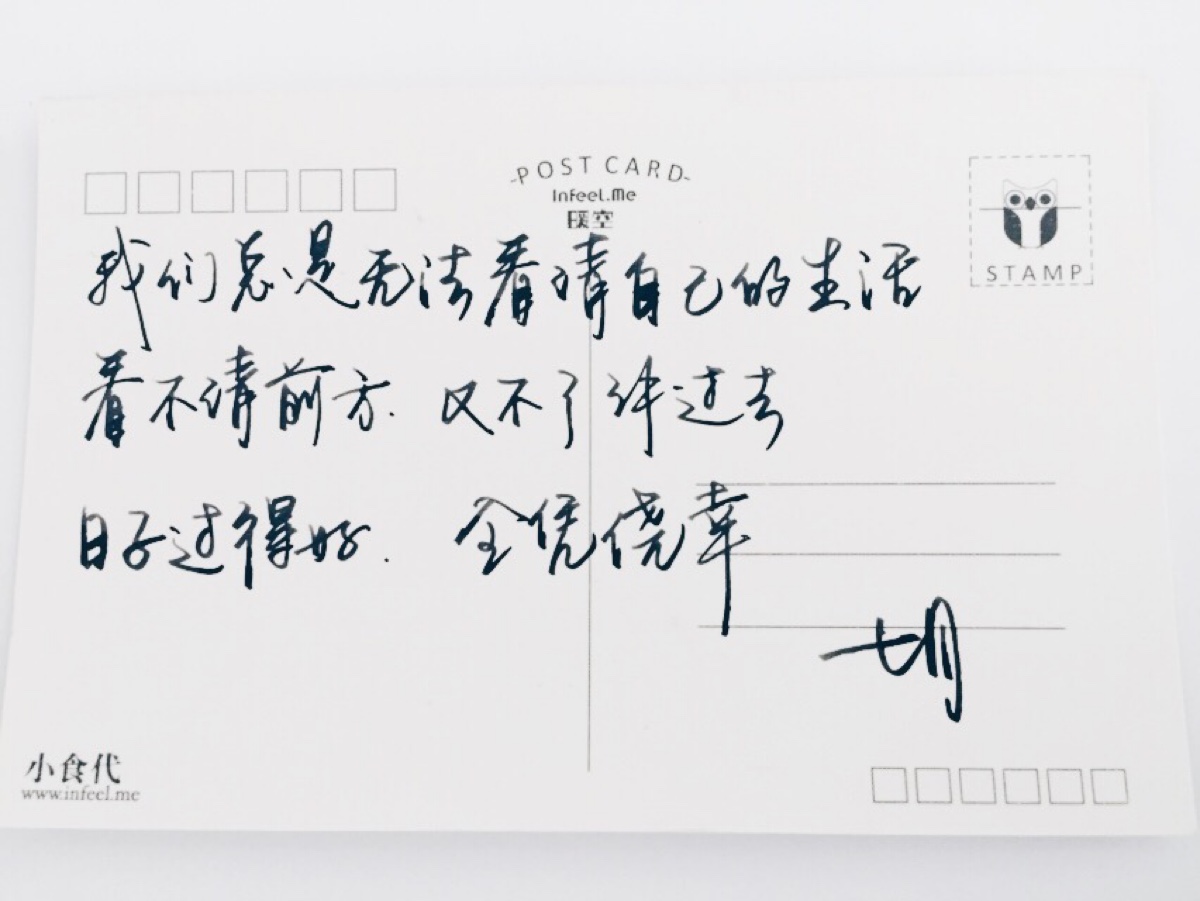 POST CARD
InFeel.Me
暖空
STAMP
我们总是无法看清自己的生活
看不清前方. 又不了解过去
日子过得好. 全凭侥幸
七月
小食代
www.infeel.me